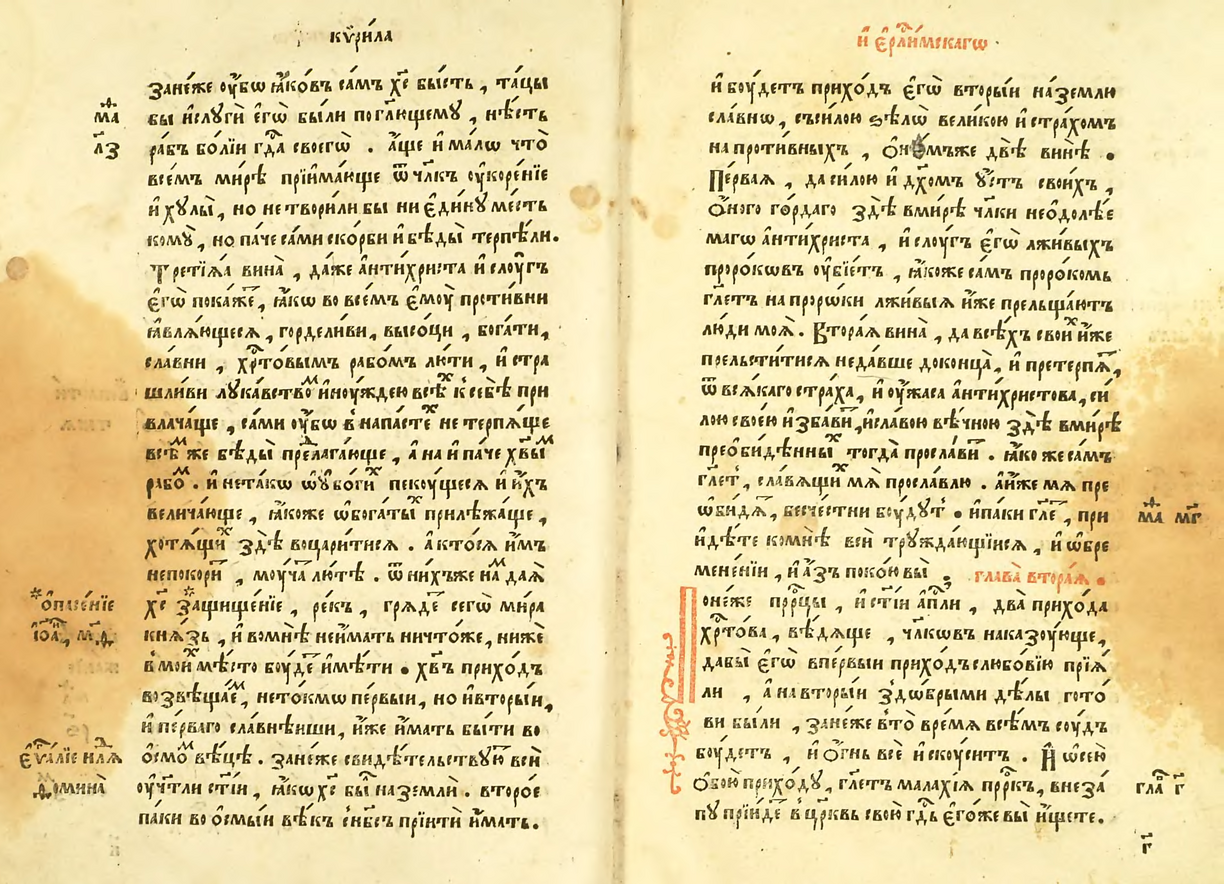 кѵ҆ри́ла
занє́жє ᲂу҆́бѡ ꙗ҆́ковъ са́мъ хс҃ бы́сть , та́цы
бы и҆слугѝ є҆гѡ̀ бы́ли поглющемꙋ̀ , нѣ́сть
ра́бъ бо́лїи гд҃а своегѡ̀ . а҆́щє и҆ ма́лѡ что̀
всѣ́мъ ми́рѣ прїима́ющє ѿ чл҃къ ᲂу҆корє́нїє
и҆ хꙋлы̀ , но нє твори́ли бы ни є҆ди́нꙋ мє́сть
комꙋ̀ , но пачє са́ми ско́рби и҆ бѣ́ды тєрпѣ́ли.
Трє́тїѧѧ вина̀ , да́жє а҆нтихри́ста и҆ слоу́гъ
є҆гѡ̀ пока́жє , ꙗ҆́кѡ во всє́мъ є҆моу̀ проти́вни
ꙗ҆влѧ́ющєсѧ , гордєли́ви , высо́ци , бога́ти ,
сла́вни , хрⷭ҇то́вымъ рабо́мъ лю́ти , и҆ стра
шли́ви лꙋка́вствоⷨ и҆ноу́ждєю всѣⷯ к сєбѣ̀ при
влача́щє , са́ми ᲂу҆́бѡ в напа́стєⷯ нє тєрпѧ́щє
всѣⷨ жє бѣ́ды прєлага́ющє , а на и҆ па́чє хв҃ыⷨ
рабоⷨ . и҆ нєта́кѡ ѡ҆ ᲂу҆бо́гиⷯ пєкоу́щєсѧ и҆ и҆́хъ
вєлича́ющє , ꙗ҆́кожє ѡ҆ бога́тыⷯ прилѣжа́щє ,
хотѧ́щиⷯ здѣ̀ воцари́тисѧ . а кто́сѧ и҆́мъ
нєпокори́т , моу́ча лю́тѣ . ѿ ни́хъжє наⷨ даѧ̀
хс҃ защищє́нїє , рє́къ , грѧдє́ сєгѡ̀ ми́ра
кнѧ́зь , и҆ вомнѣ̀ нєи҆́мать ничто́жє , нижє
в мои́ⷯ мѣ́сто боу́дє и҆мѣ́ти . хв҃ъ прихо́дъ
возвѣща́єⷨ , нєто́кмѡ пє́рвыи , но и҆вторы́и ,
и҆ пє́рваго славнѣ́иши , и҆́жє и҆́мать бы́ти во
ѻ҆смоⷨ вѣ́цѣ . занє́жє свидѣ́тєльствꙋю всѝ
ᲂу҆чи́тли ст҃і́и , ꙗ҆́кѡ хс҃ бы̀ на зємлѝ . второ́є
па́ки во ѻ҆смы́и вѣ́къ снб҃сє прїитѝ и҆́мать.
м҃а
л҃з
*ѻ҆пис́єнїє
і҆ѡ҆а , м҃д
є҆ѵⷢ҇а́лїє нл҃ѧ
домина̀
и҆ є҆рл҃и́мскагѡ
и҆ боу́дєтъ прихо́дъ є҆гѡ̀ вторы́и на зє́млю
сла́внѡ , съси́лою ѕѣлѡ̀ вєли́кою и҆ стра́хомъ
на проти́вныхъ , мъжє двѣ̀ винѣ̀ .
Пє́рваѧ , да си́лою и҆ дх҃омъ ᲂу҆́стъ свои́хъ ,
ѻ҆́ного го́рдаго здѣ̀ вми́рѣ чл҃ки нєѻ҆долѣ́є
маго а҆нтихри́ста , и҆ слоу́гъ є҆гѡ̀ лжи́выхъ
проро́кѡвъ ᲂу҆бїє́тъ , ꙗ҆́кожє са́мъ проро́комь
гл҃єтъ на проро́ки лжи́выѧ и҆́жє прєльща́ютъ
лю́ди моѧ̀. Втора́ѧ вина̀ , да всѣ́хъ свои́ⷯ и҆́жє
прєльсти́тисѧ нєда́вшє доконца̀ , и҆ прєтєрпѧ́ ,
ѿ всѧ́каго стра́ха , и҆ ᲂу҆́жаса а҆нтихри́стова , си
лою своє́ю и҆зба́ви , и҆сла́вою вѣ́чною здѣ̀ вми́рѣ
прєѻ҆би́дѣнныⷯ тогда̀ просла́ви . ꙗ҆́ко жє са́мъ
гл҃єт , сла́вѧщиⷯ мѧ̀ просла́влю . а и҆́жє мѧ прє
ѡ҆би́дѧ , бєсчє́стни боу́дꙋт . и҆ па́ки гл҃є , при
и҆дѣ́тє комнѣ̀ всѝ трꙋжда́ющїисѧ , и҆ ѡ҆брє
мєнє́нїи , и҆ а҆́зъ поко́ю вы̀ . глава̀ втора́ѧ .
Понє́жє прⷪ҇ро́цы , и҆ ст҃і́и а҆пⷭ҇ли , два̀ прихо́да
хрⷭ҇то́ва , вѣ́дѧщє , чл҃кѡвъ наказоу́ющє ,
да бы̀ є҆гѡ̀ впє́рвыи прихо́дъ слюбо́вїю прїѧ́
ли , а на вторы́и здо́брыми дѣ́лы гото́
ви бы́ли , занє́жє вто̀ врє́мѧ всѣ́мъ соу́дъ
боу́дєтъ , и҆ ѻ҆́гнь всє̀ и҆скоу́ситъ . И҆ ѡ҆сє́ю
ѻ҆бою̀ прихо́дꙋ , гл҃єтъ мала́хїѧ прⷪ҇ркъ , внєза́
пꙋ прїи́дє в црⷪ҇квь свою̀ гдⷭ҇ь є҆го́жє вы̀ и҆́щєтє.
м҃а м҃г
гла҃ г҃
г҃